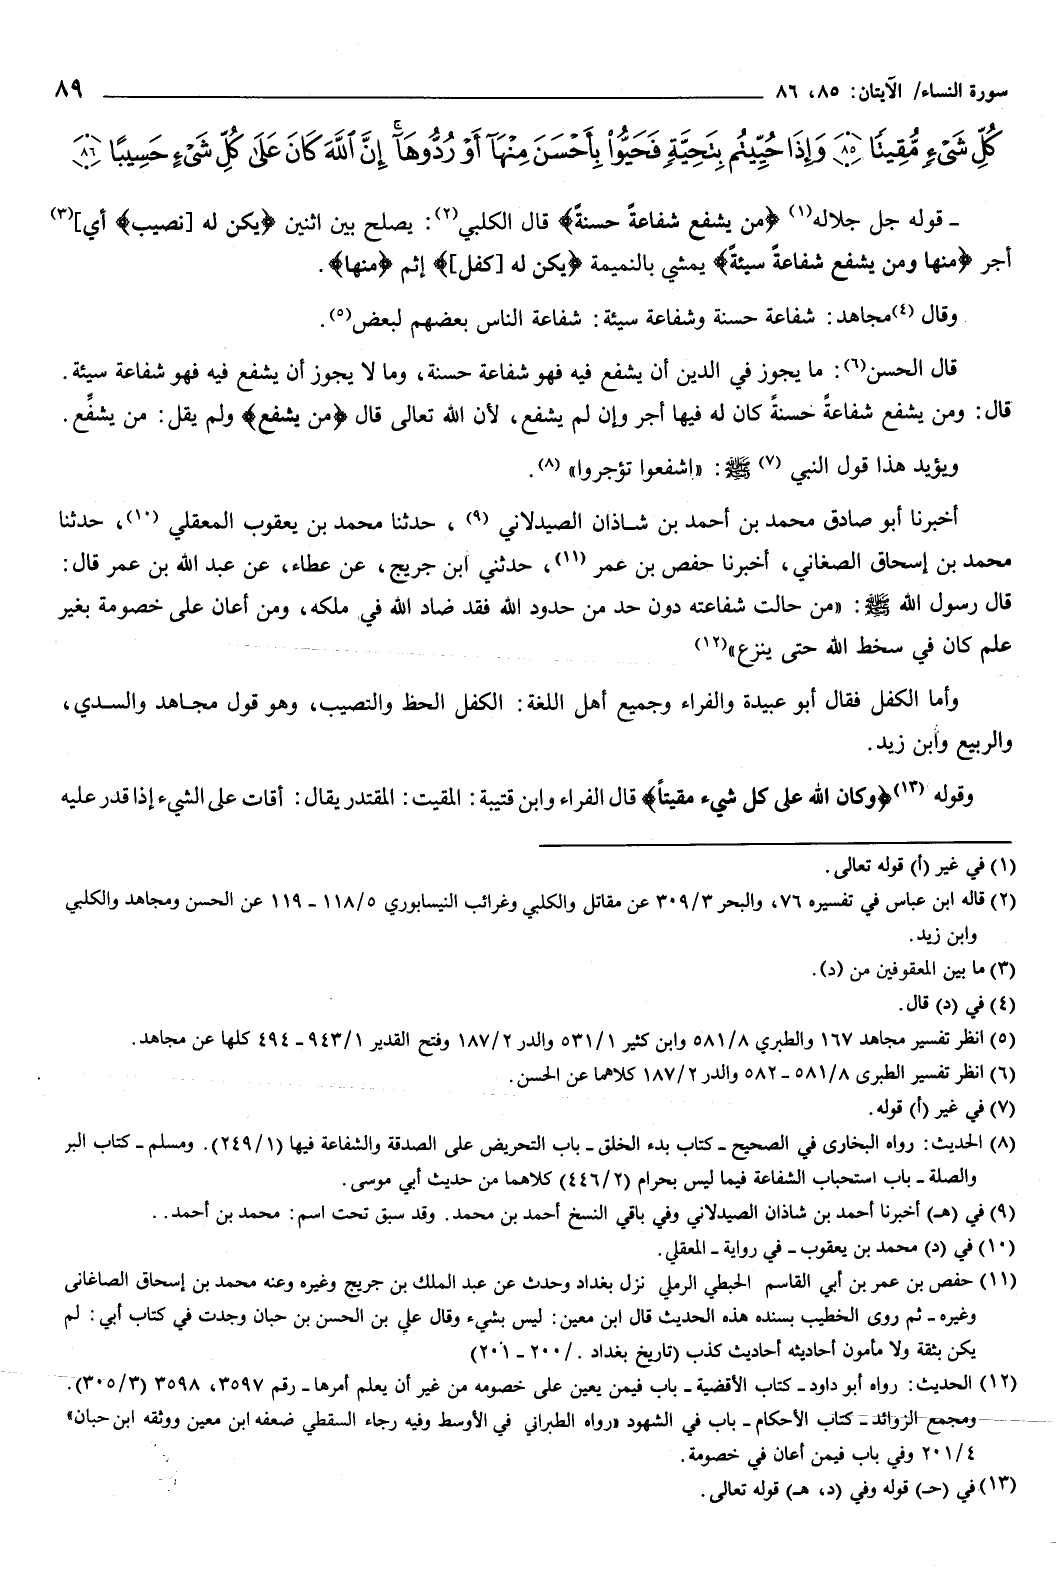 سورة النساء/ الآيتان: ٨٥، ٨٦ ٨٩
كُلِّ شَىْءٍ مُّقِيتًا ﴿٨٥﴾ وَإِذَا حُيِّيتُم بِتَحِيَّةٍ فَحَيُّوا۟ بِأَحْسَنَ مِنْهَآ أَوْ رُدُّوهَآ ۗ إِنَّ ٱللَّهَ كَانَ عَلَىٰ كُلِّ شَىْءٍ حَسِيبًا ﴿٨٦﴾
ـ قوله جل جلاله(١) ﴿من يشفع شفاعةً حسنةً﴾ قال الكلبي(٢): يصلح بين اثنين ﴿يكن له [نصيب﴾ أي](٣)
أجر ﴿منها ومن يشفع شفاعةً سيئةً﴾ يمشي بالنميمة ﴿يكن له [كفل]﴾ إثم ﴿منها﴾.
وقال (٤)مجاهد: شفاعة حسنة وشفاعة سيئة: شفاعة الناس بعضهم لبعض(٥).
قال الحسن(٦): ما يجوز في الدين أن يشفع فيه فهو شفاعة حسنة، وما لا يجوز أن يشفع فيه فهو شفاعة سيئة.
قال: ومن يشفع شفاعةً حسنةً كان له فيها أجر وإن لم يشفع، لأن الله تعالى قال ﴿من يشفع﴾ ولم يقل: من يشفَّع.
ويؤيد هذا قول النبي (٧) ﷺ: «اشفعوا تؤجروا» (٨).
أخبرنا أبو صادق محمد بن أحمد بن شـاذان الصيدلاني (٩) ، حدثنا محمد بن يعقوب المعقلي (١٠)، حدثنا
محمد بن إسحاق الصغاني، أخبرنا حفص بن عمر (١١)، حدثني ابن جريج، عن عطاء، عن عبد الله بن عمر قال:
قال رسول الله ﷺ: «من حالت شفاعته دون حد من حدود الله فقد ضاد الله في ملكه، ومن أعان على خصومة بغير
علم كان في سخط الله حتى ينزع»(١٢)
وأما الكفل فقال أبو عبيدة والفراء وجميع أهل اللغة: الكفل الحظ والنصيب، وهو قول مجـاهد والسـدي،
والربيع وابن زيد.
وقوله (١٣)﴿وكان الله على كل شيء مقيتاً﴾ قال الفراء وابن قتيبة: المقيت: المقتدر يقال: أقات على الشيء إذا قدر عليه
(١) في غير (أ) قوله تعالى.
(٢) قاله ابن عباس في تفسيره ٧٦، والبحر ٣٠٩/٣ عن مقاتل والكلبي وغرائب النيسابوري ١١٨/٥ ـ ١١٩ عن الحسن ومجاهد والكلبي
وابن زيد.
(٣) ما بين المعقوفين من (د).
(٤) في (د) قال.
(٥) انظر تفسير مجاهد ١٦٧ والطبري ٥٨١/٨ وابن كثير ٥٣١/١ والدر ١٨٧/٢ وفتح القدير ٩٤٣/١ ـ ٤٩٤ كلها عن مجاهد.
(٦) انظر تفسير الطبرى ٥٨١/٨ ـ ٥٨٢ والدر ١٨٧/٢ كلاهما عن الحسن.
(٧) في غير (أ) قوله.
(٨) الحديث: رواه البخارى في الصحيح ـ كتاب بدء الخلق ـ باب التحريض على الصدقة والشفاعة فيها (٢٤٩/١). ومسلم ـ كتاب البر
والصلة ـ باب استحباب الشفاعة فيما ليس بحرام (٤٤٦/٢) كلاهما من حديث أبي موسى.
(٩) في (هـ) أخبرنا أحمد بن شاذان الصيدلاني وفي باقي النسخ أحمد بن محمد. وقد سبق تحت اسم: محمد بن أحمد. .
(١٠) في (د) محمد بن يعقوب ـ في رواية ـ المعقلي.
(١١) حفص بن عمر بن أبي القاسم الحبطي الرملي نزل بغداد وحدث عن عبد الملك بن جريج وغيره وعنه محمد بن إسحاق الصاغانى
وغيره ـ ثم روى الخطيب بسنده هذه الحديث قال ابن معين: ليس بشيء وقال علي بن الحسن بن حبان وجدت في كتاب أبي: لم
يكن بثقة ولا مأمون أحاديثه أحاديث كذب (تاريخ بغداد ./٢٠٠ ـ ٢٠١)
(١٢) الحديث: رواه أبو داود ـ كتاب الأقضية ـ باب فيمن يعين على خصومه من غير أن يعلم أمرها ـ رقم ٣٥٩٧، ٣٥٩٨ (٣٠٥/٣).
ومجمع الزوائد ـ كتاب الأحكام ـ باب في الشهود «رواه الطبراني في الأوسط وفيه رجاء السقطي ضعفه ابن معين ووثقه ابن حبان»
٢٠١/٤ وفي باب فيمن أعان في خصومة.
(١٣) في (حـ) قوله وفي (د، هـ) قوله تعالى.